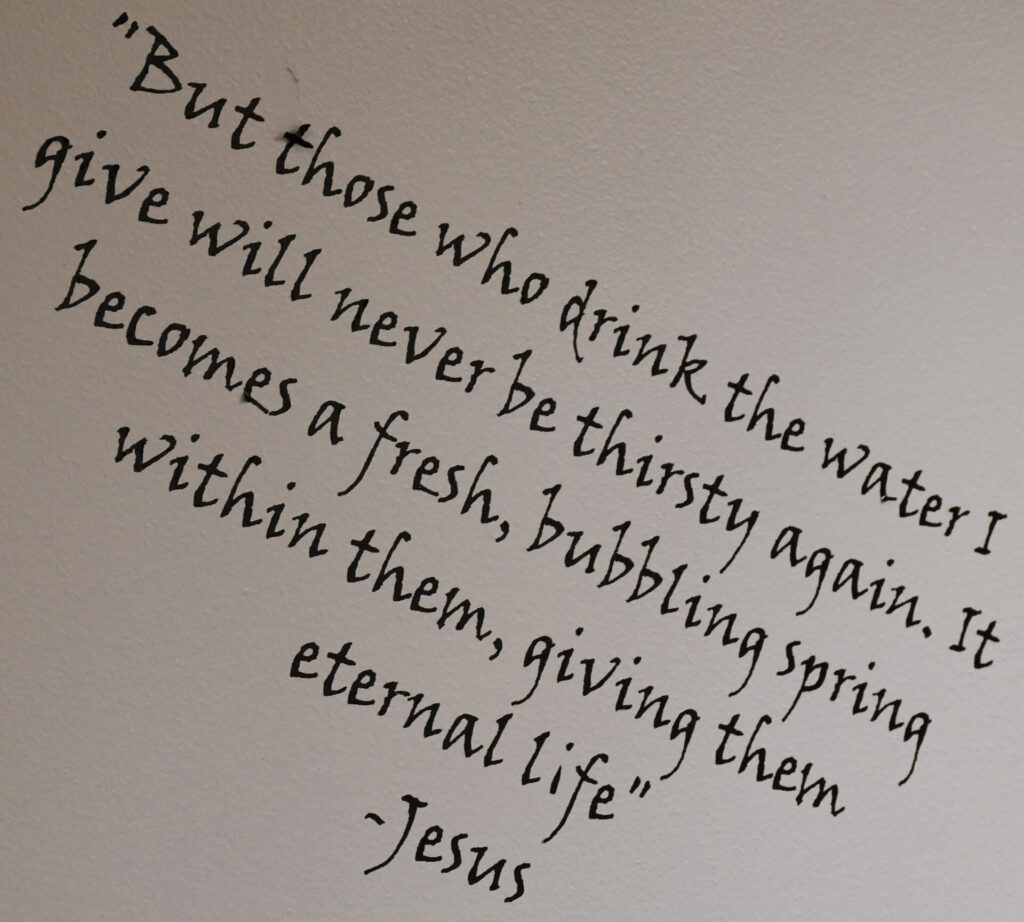 "But those who drink the water I
give will never be thirsty again. It
becomes a fresh, bubbling spring
within them, giving them
eternal life"
~Jesus